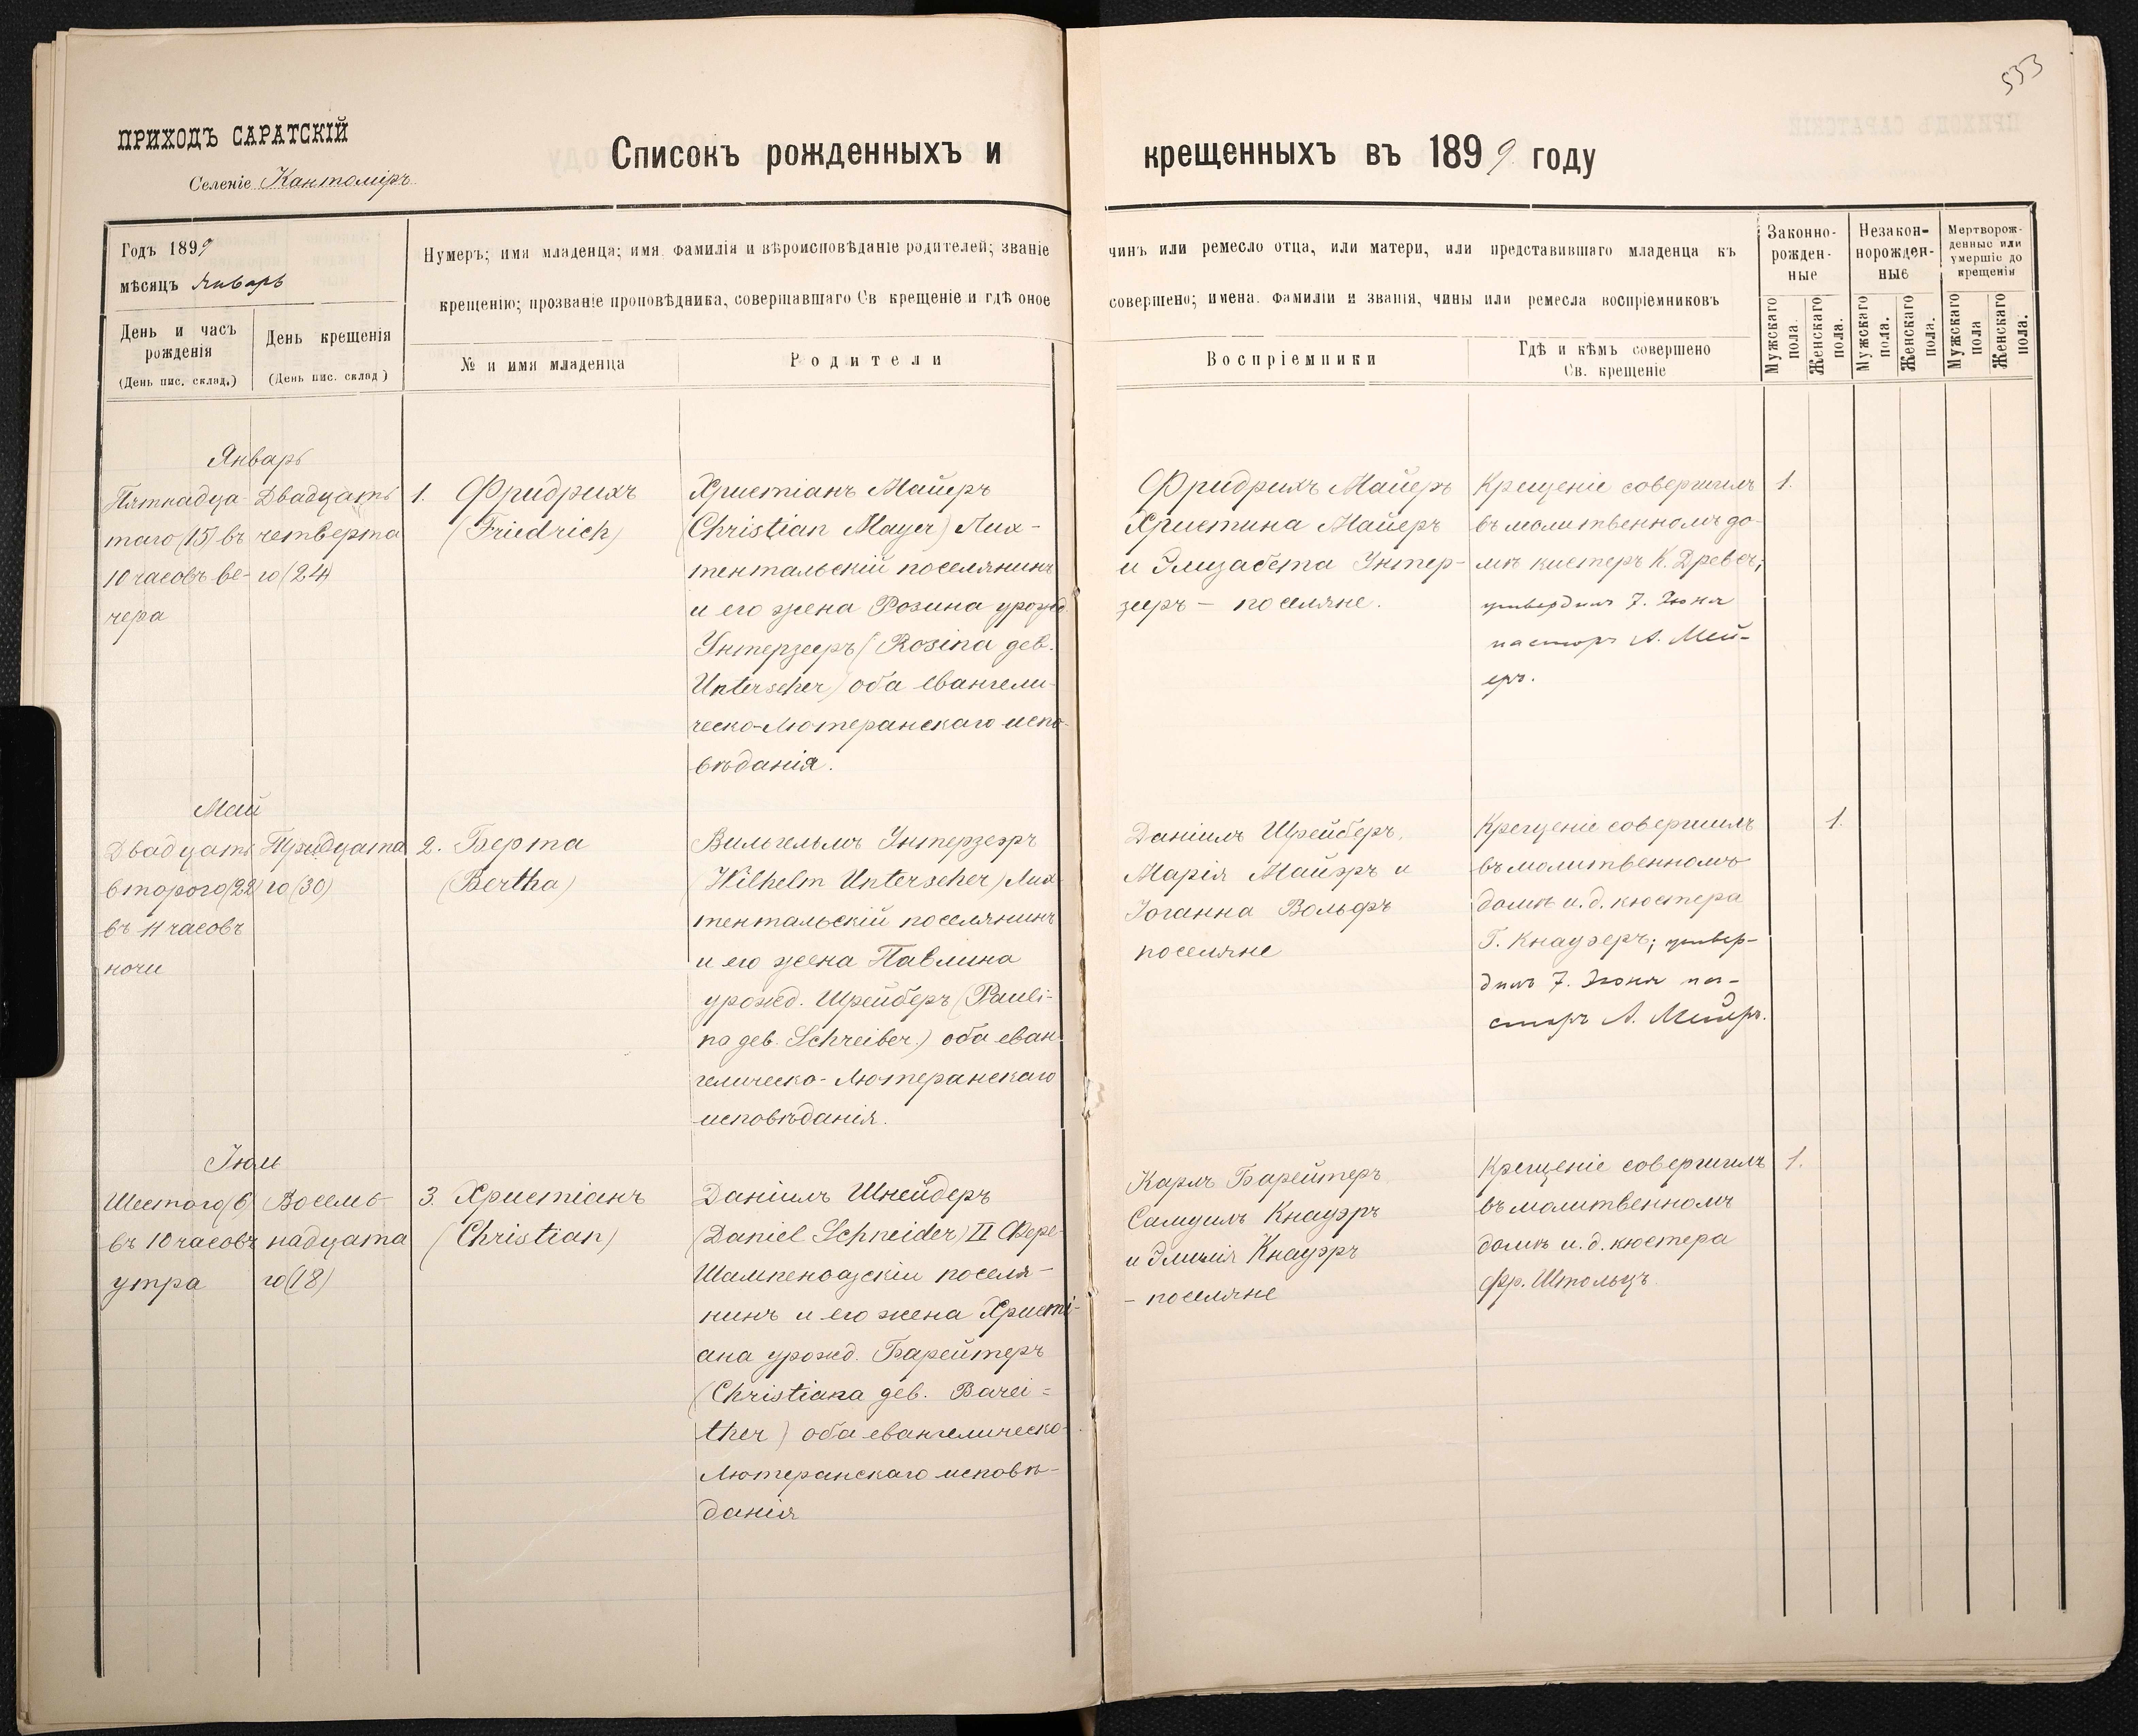 533
ПРИХОДЪ САРАТСКІЙ
Селеніе Кантоміръ.
Списокъ рожденныхъ и крещенныхъ въ 1899 году
Годъ 1899
мѣсяцъ Январь
День и часъ рожденія
(День пис. склад.)
День крещенія
(День пис. склад)
Нумеръ; имя младенца; имя фамилія и вѣроисповѣданіе родителей; званіе чинъ или ремесло отца, или матери, или представившаго младенца къ
крещенію; прозваніе проповѣдника, совершавшаго Св крещеніе и гдѣ оное совершено; имена. фамиліи и званія, чины или ремесла воспріемниковъ
№ и имя младенца
Родители
Воспріемники
Гдѣ и кѣмъ совершено
Св. крещеніе
Законно-
рожден-
ные
Незакон-
норожден-
ные
Мертворож-
денные или
умершіе до
крещенія
Мужскаго пола.
Женскаго пола.
Мужскаго пола.
Женскаго пола.
Мужскаго пола
Женскаго пола.
Январь
Пятнадца-
таго (15) въ
10 часовъ ве-
чера
Двадцать
четверта
го (24)
1. Фридрихъ
(Friedrich)
Христіанъ Майеръ
(Christian Mayer) Лих-
тентальскій поселянинъ
и его жена Розина урожд.
Унтерзееръ (Rosina geb.
Unterseher) оба евангели-
ческо-Лютеранскаго испо-
вѣданія.
Фридрихъ Майеръ
Христина Майеръ
и Элизабета Унтер-
зееръ - поселяне.
Крещеніе совершилъ
въ молитвенномъ до-
мѣ кистеръ К. Древсъ;
утвердилъ 7. Іюня
пасторъ А. Мей-
еръ.
1.
Май
Двадцать
второго (22)
въ 11 часовъ
ночи
Тридцата
го (30)
2. Берта
(Bertha)
Вильгельмъ Унтерзеэръ
(Wilhelm Unterseher) Лих-
тентальскій поселянинъ
и его жена Павлина
урожд. Шрейберъ (Pauli-
na geb. Schreiber.) оба еван-
гелическо-Лютеранскаго
исповѣданія.
Даніилъ Шрейберъ,
Марія Майэръ и
Іоганна Вольфъ
поселяне
Крещеніе совершилъ
въ молитвенномъ
домѣ и. д. кюстера
Г. Кнауэръ; утвер-
дилъ 7. Іюня па-
сторъ А. Мейеръ.
1.
Іюль
Шестого (6)
въ 10 часовъ
утра
Восемь-
надцата
го (18)
3. Христіанъ
(Christian)
Даніилъ Шнейдеръ
(Daniel Schneider) II Фере-
Шампеноазскій поселя-
нинъ и его жена Христі-
ана урожд. Барейтеръ
(Christiana geb. Barei-
ther) оба евангелическо-
Лютеранскаго исповѣ-
данія
Карлъ Барейтеръ,
Самуилъ Кнауэръ
и Эмилія Кнауэръ
- поселяне
Крещеніе совершилъ
въ молитвенномъ
домѣ и. д. кюстера
Фр. Штольцъ.
1.